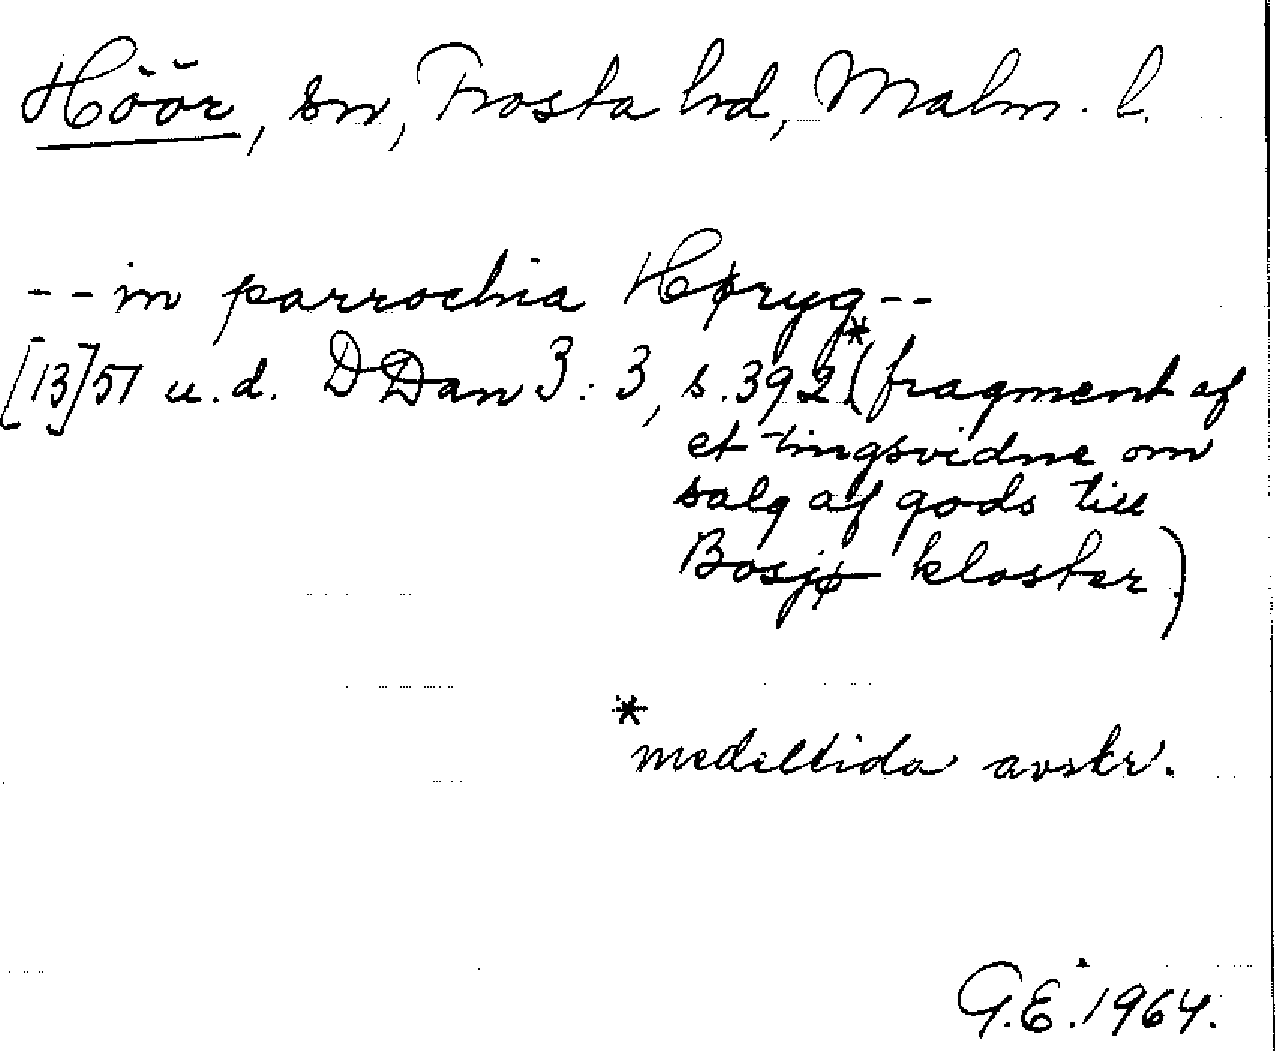 Höör, sn, Frosta hd, Malm. l.
-- in parrochia Høryg --
[13]51 u.d. DDan 3:3, s.392* (fragment af
et tingsvidne om
salg af gods till
Bosjø kloster)
*
medeltida avskr.
G.E. 1964.